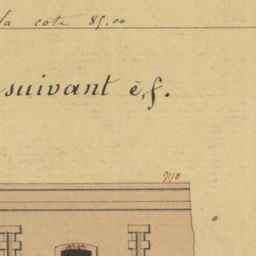 la cote 85.00
suivant è,f.